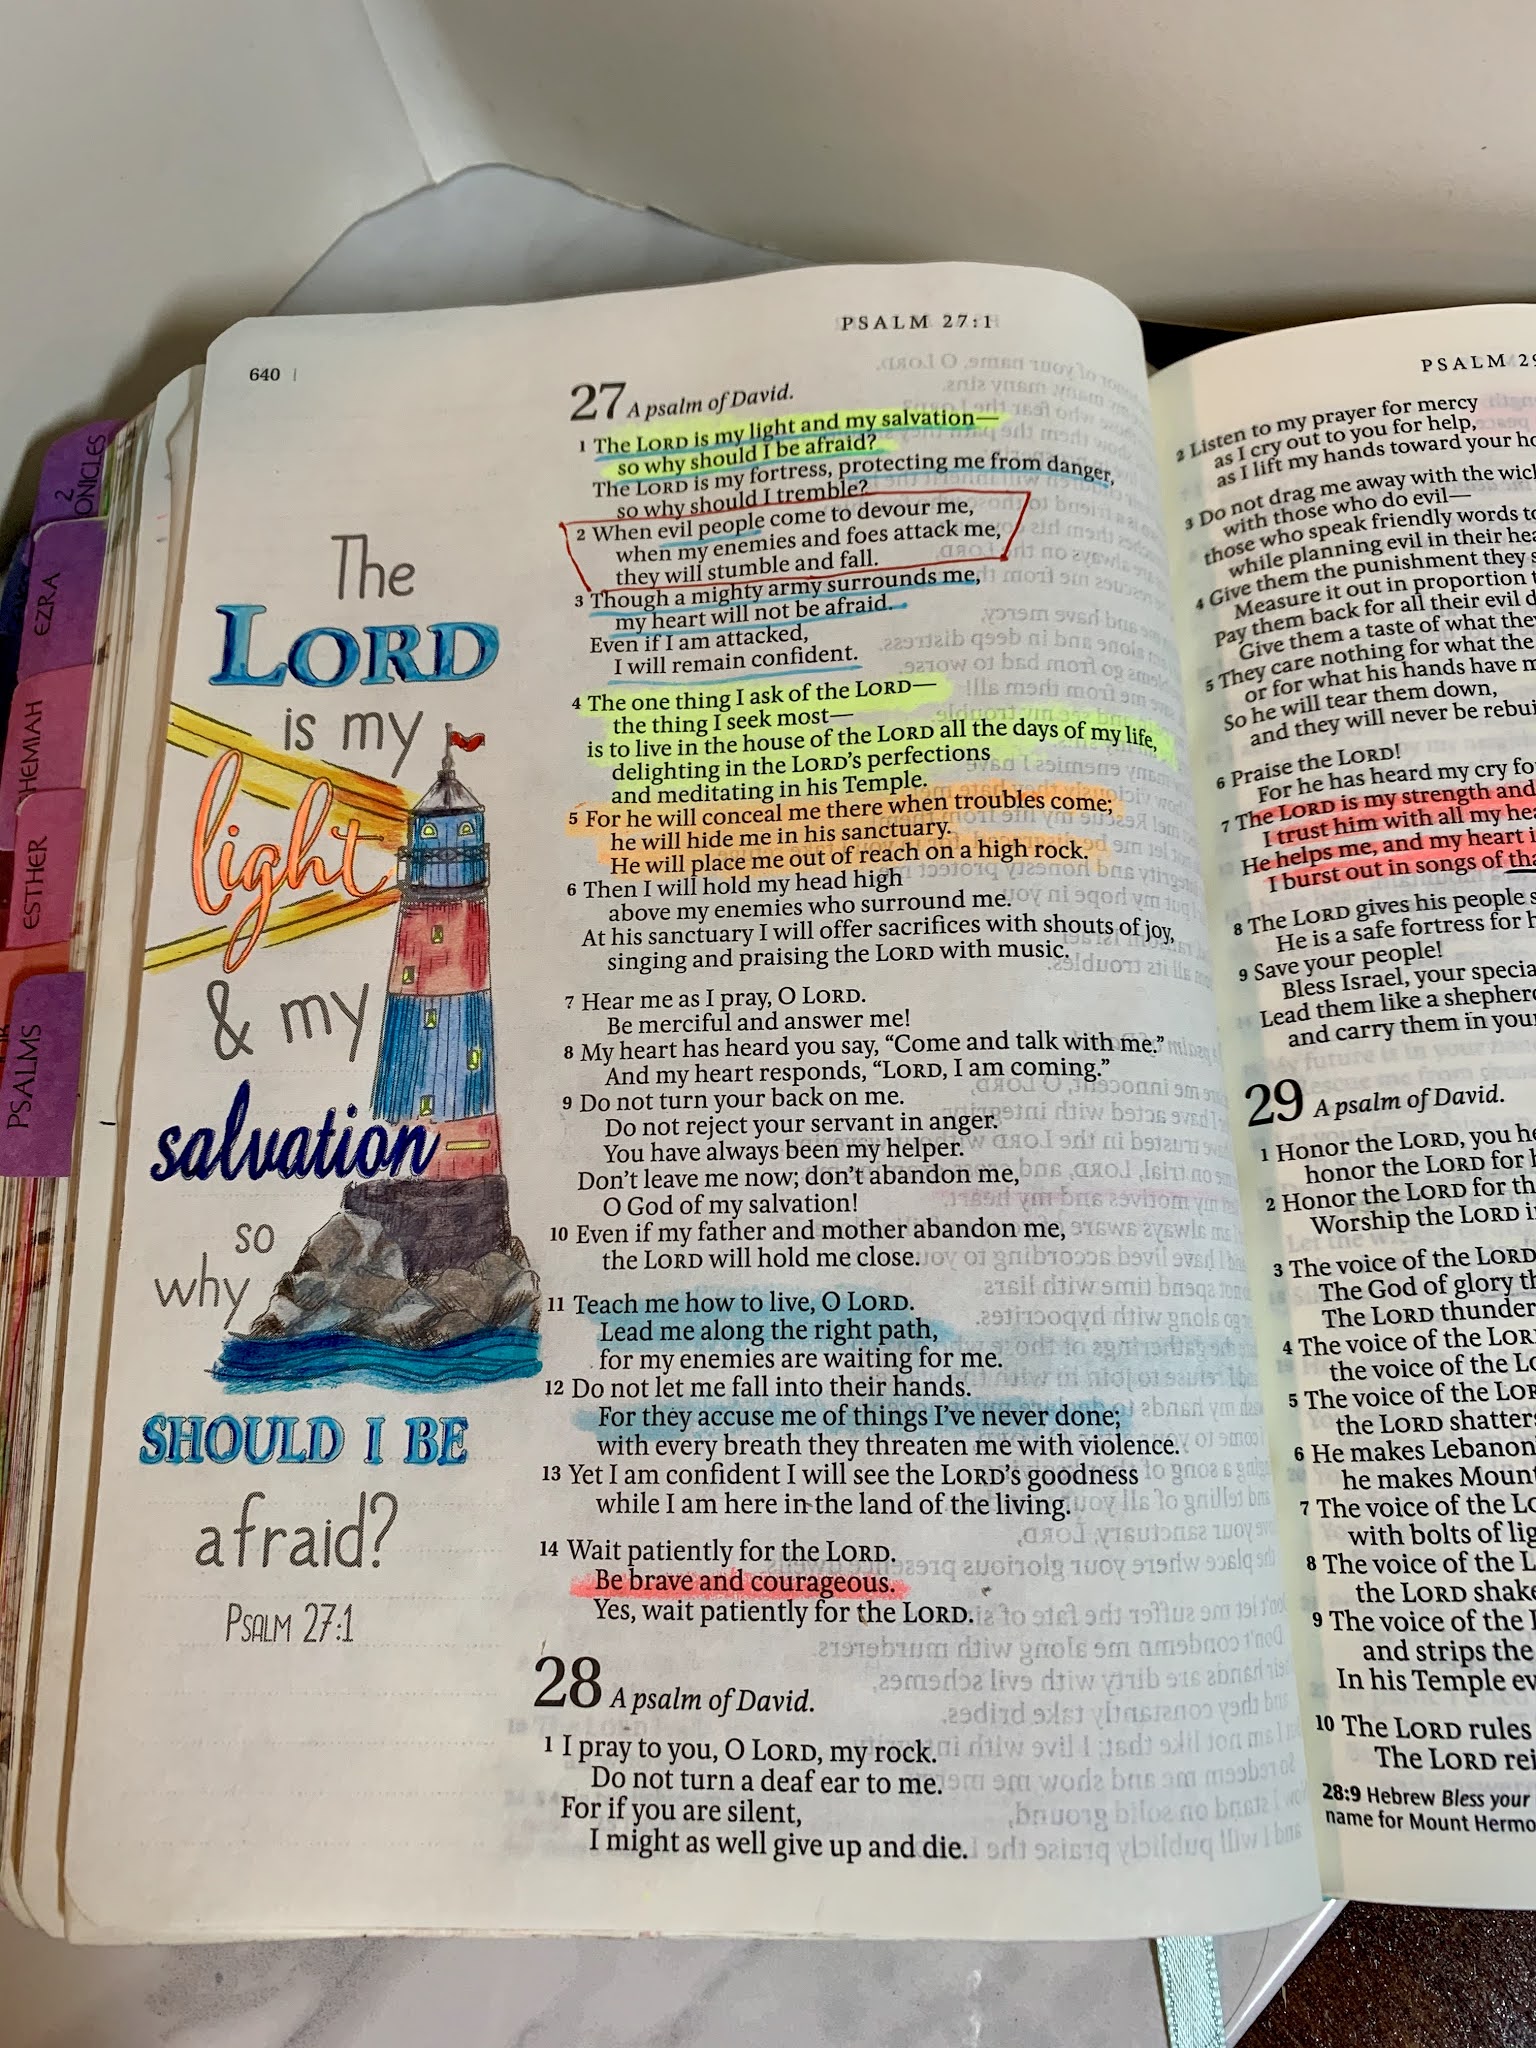 2
ONICLES
EZRA
HEMIAH
ESTHER
PSALMS
640
PSALM 27:1
The
LORD
is my
light
& my
salvation
so
why
SHOULD I BE
afraid?
PSALM 27:1
27 A psalm of David.
1 The LORD is my light and my salvation—
so why should I be afraid?
The LORD is my fortress, protecting me from danger,
so why should I tremble?
2 When evil people come to devour me,
when my enemies and foes attack me,
they will stumble and fall.
3 Though a mighty army surrounds me,
my heart will not be afraid.
Even if I am attacked,
I will remain confident.
4 The one thing I ask of the LORD—
the thing I seek most—
is to live in the house of the LORD all the days of my life,
delighting in the LORD's perfections
and meditating in his Temple.
5 For he will conceal me there when troubles come;
he will hide me in his sanctuary.
He will place me out of reach on a high rock.
6 Then I will hold my head high
above my enemies who surround me.
At his sanctuary I will offer sacrifices with shouts of joy,
singing and praising the LORD with music.
7 Hear me as I pray, O LORD.
Be merciful and answer me!
8 My heart has heard you say, “Come and talk with me.”
And my heart responds, “LORD, I am coming.”
9 Do not turn your back on me.
Do not reject your servant in anger.
You have always been my helper.
Don't leave me now; don't abandon me,
O God of my salvation!
10 Even if my father and mother abandon me,
the LORD will hold me close.
11 Teach me how to live, O LORD.
Lead me along the right path,
for my enemies are waiting for me.
12 Do not let me fall into their hands.
For they accuse me of things I've never done;
with every breath they threaten me with violence.
13 Yet I am confident I will see the LORD's goodness
while I am here in the land of the living.
14 Wait patiently for the LORD.
Be brave and courageous.
Yes, wait patiently for the LORD.
28 A psalm of David.
1 I pray to you, O LORD, my rock.
Do not turn a deaf ear to me.
For if you are silent,
I might as well give up and die.
PSALM 29
2 Listen to my prayer for mercy
as I cry out to you for help,
as I lift my hands toward your
3 Do not drag me away with the
with those who do evil—
those who speak friendly words
while planning evil in their
4 Give them the punishment they
Measure it out in proportion
Pay them back for all their evil
Give them a taste of what
5 They care nothing for what the
or for what his hands have
So he will tear them down,
and they will never be
6 Praise the LORD!
For he has heard my cry
7 The LORD is my strength and
I trust him with all my
He helps me, and my heart
I burst out in songs of
8 The LORD gives his people
He is a safe fortress for
9 Save your people!
Bless Israel, your
Lead them like a
and carry them in
29 A psalm of David.
1 Honor the LORD, you
honor the LORD for
2 Honor the LORD for
Worship the LORD
3 The voice of the LORD
The God of glory
The LORD
4 The voice of the
the voice of the
5 The voice of the
the LORD
6 He makes Lebanon
he makes
7 The voice of the
with bolts of
8 The voice of the
the LORD
9 The voice of the
and strips the
In his Temple
10 The LORD rules
The LORD
28:9 Hebrew Bless your
name for Mount